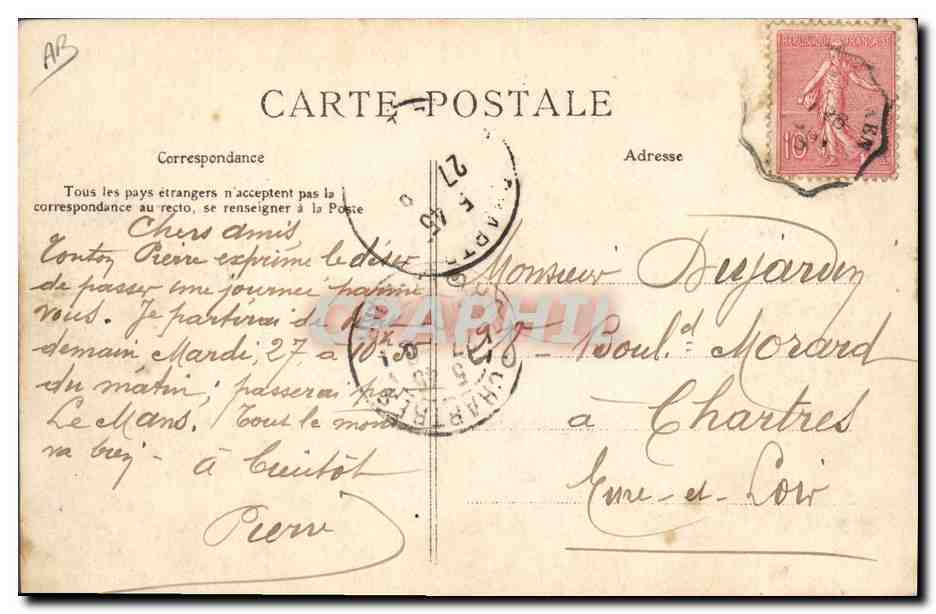 AB
CARTE POSTALE
REPUBLIQUE FRANÇAISE
10
Correspondance
Adresse
Tous les pays étrangers n'acceptent pas la
correspondance au recto, se renseigner à la Poste
27
5 45
CHARTRES
Chers amis
Tonton Pierre exprime le désir
de passer une journée parmi
vous. Je partirai de
demain Mardi, 27 à 10h
du matin; passerai par
Le Mans. Tout le monde
va bien - à bientôt
Pierre
Monsieur Dujardin
Boul.d Morard
à Chartres
Eure-et-Loir
CPAPHIL